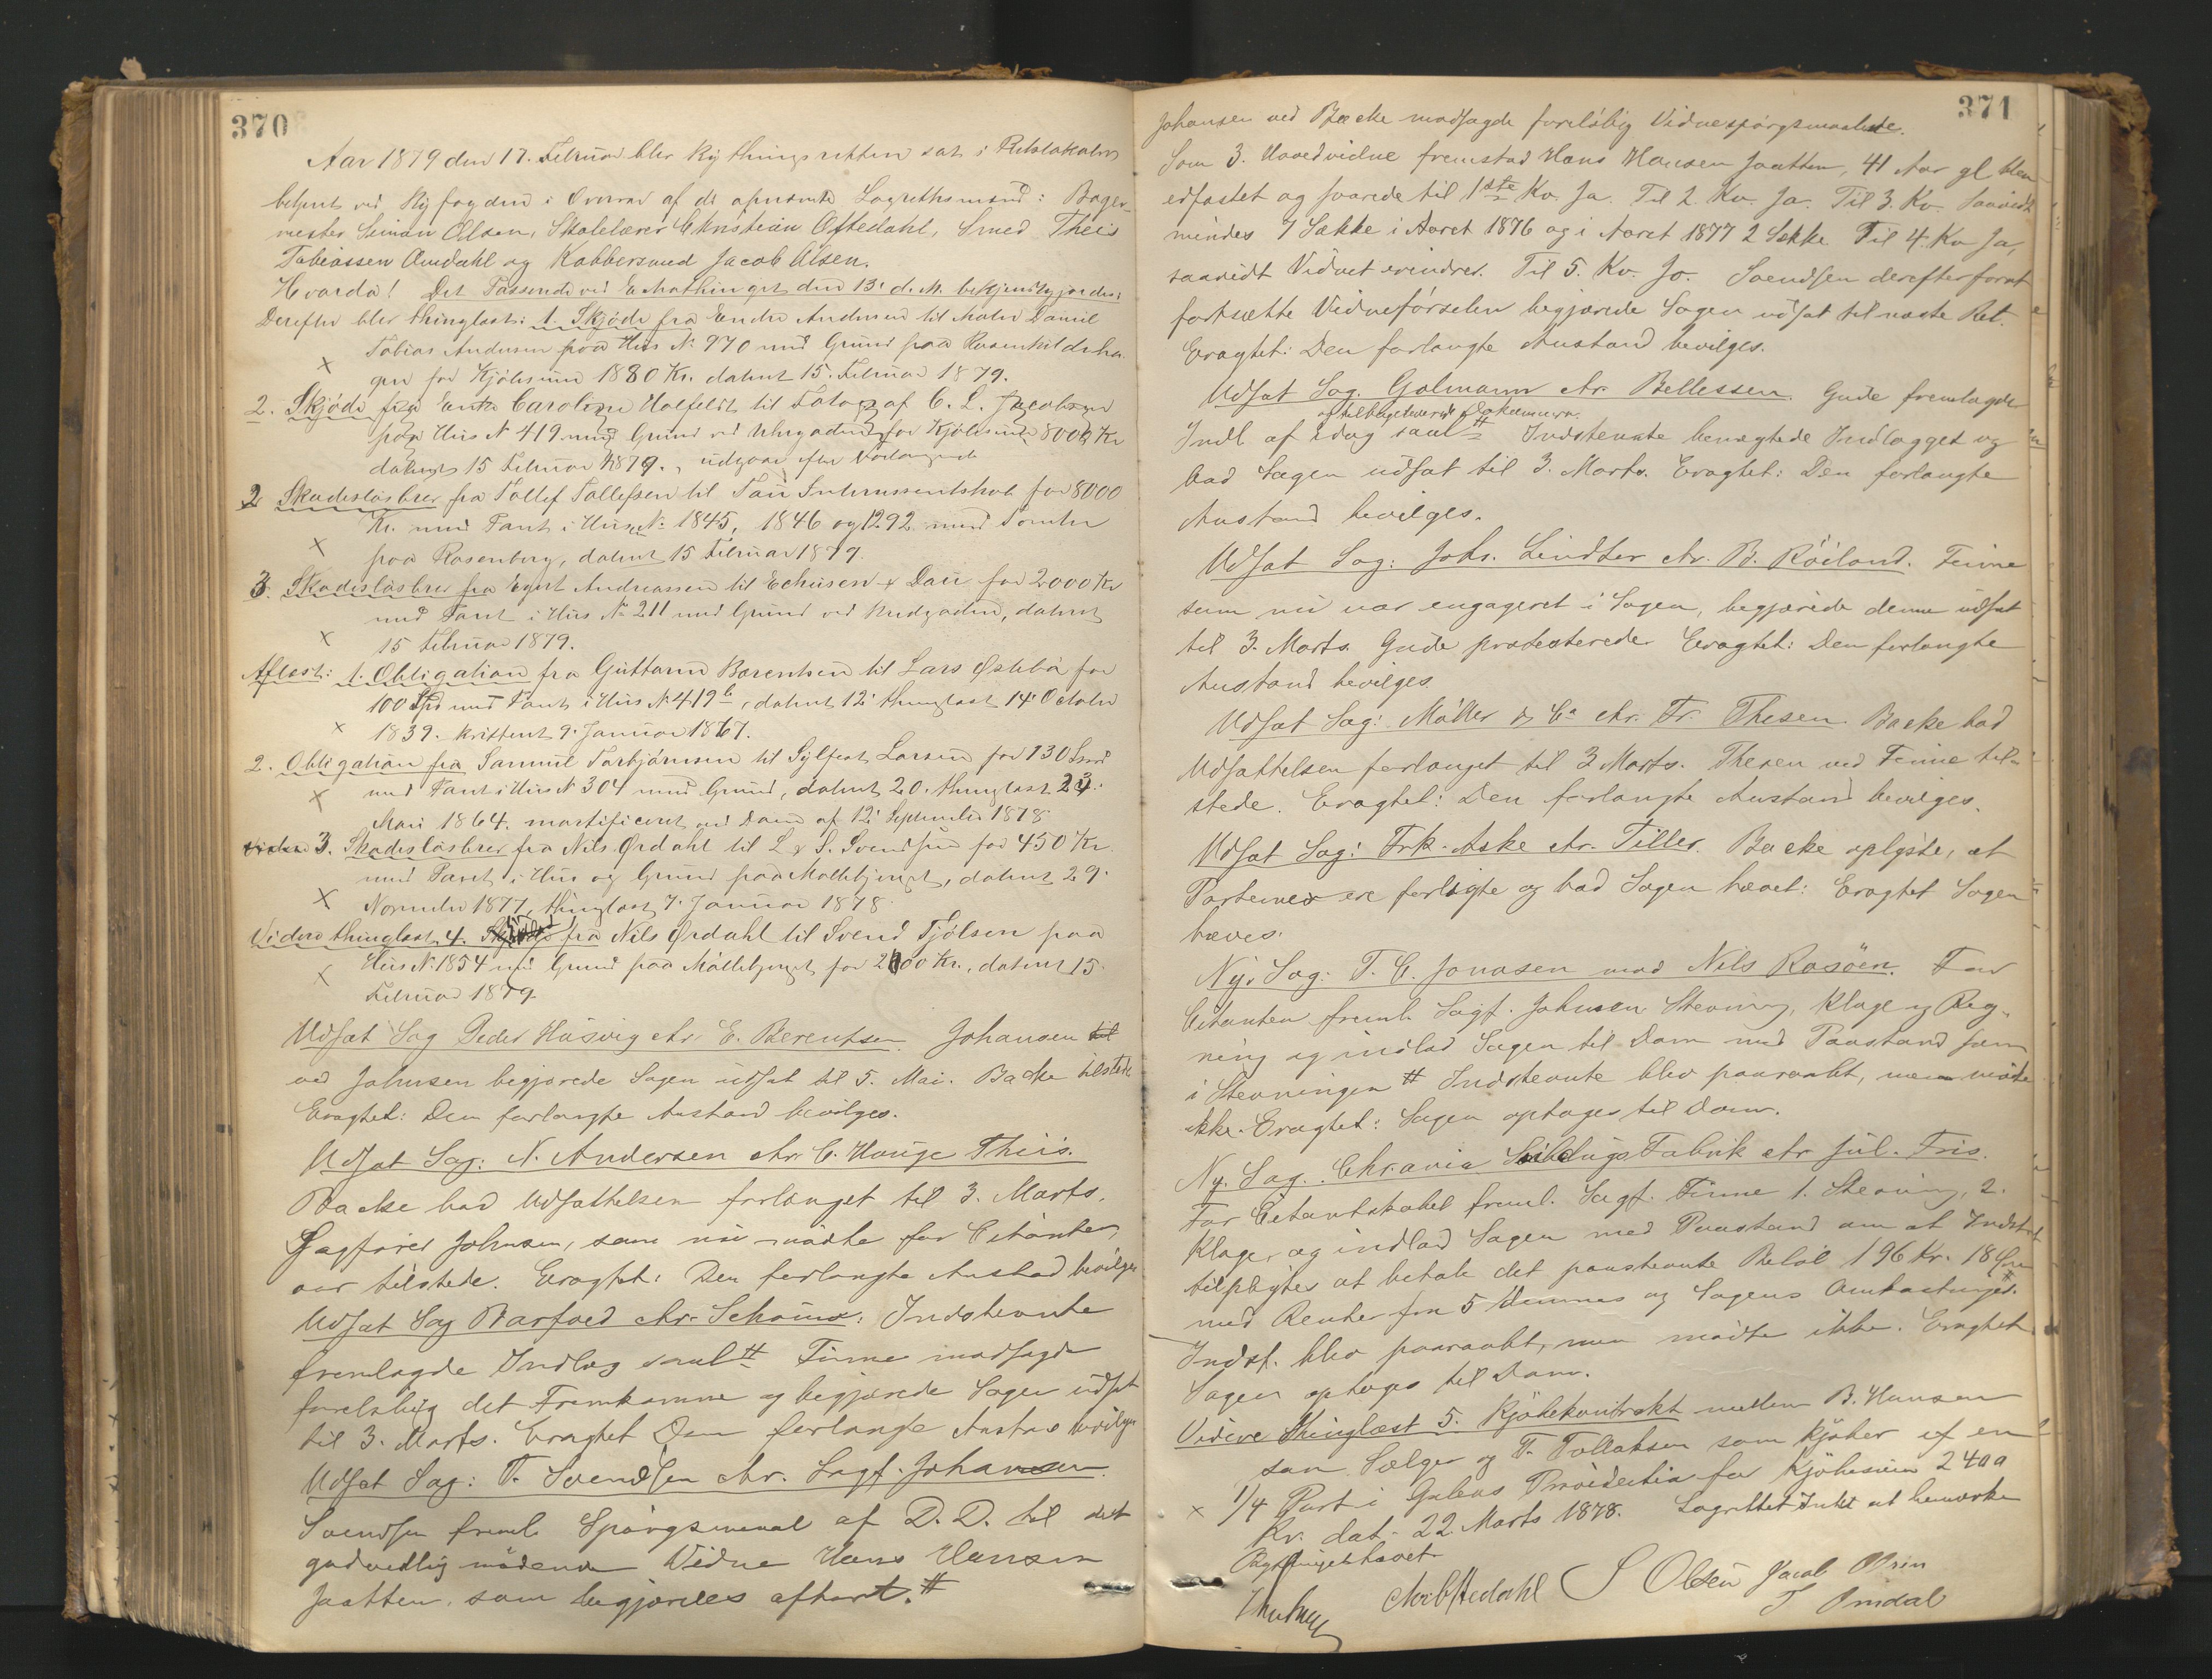 370
Aar 1879 den 17. Februar blev Bythingsretten sat i Retslokalet
betjent ved Byfogden i Overvær af de opnævnte Lagrethsmænd: Bager-
mester Simon Olsen, Skolelærer Christian Oftedahl, Smed Theis
Tobiassen Omdahl og Kobbersmed Jacob Olsen.
Hvorda! Det Passerede ved Extrathinget den 13' d. M. bekjendtgjordes:
Derefter blev thinglæst: 1. Skjöde fra Endre Andersen til Maler Daniel
Tobias Andersen paa Huus No 970 med Grund paa Rosenkildeha-
gen for Kjöbesum 1880 Kr. datert 15. Februar 1879.
2. Skjöde fra Enke Caroline Holfeldt til Fotograf C. L. Jacobsen
paa Huus N 419 med Grund ved for Kjöbesum 8006 Kr
datert 15 Februar 1879. udgaar efter Forlangende
2 Skadeslösbrev fra Tollef Tollefsen til Tou Interessentskab for 8000
Kr. med Pant i Huse No 1845, 1846 og 1292 med Tomter
paa Rosenberg, datert 15 Februar 1879.
3. Skadeslösbrev fra Egert Andreassen til Echusen & Dau for 2000 Kr
med Pant i Huus No 211 med Grund ved datert
15 Februar 1879.
Aflæst: 1. Obligation fra Guttorm Berentsen til Lars Østebö for
100 Spd med Pant i Huus N 419 b, datert 12' thinglæst 14' October
1839. kvittert 9. Januar 1867.
2. Obligation fra Samuel Torbjörnsen til Sylfest Larsen for 130
med Pant i Huus N 304 med Grund, datert 20. thinglæst 23.
Mai 1864. mortificeret ved Dom af 12' September 1878
3. Skadeslösbrev fra Nils Ørdahl til L & S. Svendsen for 450 Kr.
med Pant i Huus og Grund paa Möllebjerget, datert 29.
November 1877, thinglæst 7. Januar 1878.
Videre thinglæst 4. fra Nils Ørdahl til Svend Tjölsen paa
Huus No 1854 med Grund paa Möllebjerget for 2100 Kr., datert 15.
Februar 1879.
Udsat Sag Peder Husvig ctr. E. Berentsen. Johansen til
ved Johnsen begjærede Sagen udsat til 5. Mai. Backe tilstede
Eragtet: Den forlangte Anstand bevilges.
Udsat Sag: N. Andersen ctr. C. Hauge Thiis.
Backe bad Udsættelsen forlænget til 3. Marts.
Sagförer Johnsen, som nu mödte for Citanten
var tilstede. Eragtet: Den forlangte Anstad bevilges
Udsat Sag Barfoed ctr. Indstevnte
fremlagde Indlæg saal# Finne modsagde
foreløbig det Fremkomne og begjærede Sagen udsat
til 3. Marts. Eragtet Den forlangte Anstand bevilges
Udsat Sag: T. Svendsen ctr. Sagf. Johansen
Svendsen freml. Spörgsmaal af D. D. til det
godvillig mödende Vidne Hans Hansen
Jaatten, som begjæredes afhørt.#
371
Johansen ved Backe modsagde foreløbig Vidnespörgsmaalene.
Som 3. Hovedvidne fremstod Hans Hansen Jaatten, 41 Aar gl blev
edfæstet og svarede til 1ste Kv. Ja. Til 2. Kv. Ja. Til 3. Kv. Saavidt
mindes 7 Sække i Aaret 1876 og i Aaret 1877 2 Sække Til 4. Kv Ja,
saavidt Vidnet erindrer. Til 5. Kv. Jo. Svendsen derefter forat
fortsætte Vidneførselen begjærede Sagen udsat til næste Ret.
Eragtet: Den forlangte Anstand bevilges.
Udsat Sag. Golmann ctr. Bellessen. Gude fremlagde
og tilbageleverede Dokumenterne
Indl af idag saal# Indstevnte benægtede Indlægget og
bad Sagen udsat til 3. Marts. Eragtet: Den forlangte
Anstand bevilges.
Udsat Sag: Johs. Lindter ctr. B. Röiland. Finne
som nu var engageret i Sagen, begjærede denne udsat
til 3. Marts. Gude protesterede Eragtet: Den forlangte
Anstand bevilges.
Udsat Sag: Möller & Co ctr. Fr. Thesen. Backe bad
Udsættelsen forlænget til 3 Marts. Thesen ved Finne til-
stede. Eragtet: Den forlangte Anstand bevilges.
Udsat Sag: Frk. Aske ctr. Tiller. Backe oplyste, at
Parterne ere forligte og bad Sagen hævet: Eragtet Sagen
hæves.
Ny. Sag: T. C. Jonasen mod Nils Rosöen. For
Citanten freml. Sagf. Johnsen Stevning, Klage og Reg-
ning og indlod Sagen til Dom med Paastand som
i Stevningen # Indstevnte blev paaraabt, men mödte
ikke. Eragtet: Sagen optages til Dom.
Ny. Sag. Chr.ania Fabrik ctr Jul. Friis.
For Citantskabet freml. Sagf. Finne 1. Stevning, 2.
Klage, og indlod Sagen med Paastand om at Indst
tilpligtes at betale det paastevnte Belöb 196 Kr. 18 Øre
med Renter fra 5 og Sagens Omkostninger.
Indst. blev paaraabt, men mödte ikke. Eragtet
Sagen optages til Dom.
Videre thinglæst 5. Kjöbekontrakt mellem B. Hansen
som Sælger og T. Tollaksen som Kjöber af en
1/4 Part i Galeas Providentia for Kjöbesum 2400
Kr. dat. 22 Marts 1878. Lagrettet Intet at bemærke
Bythinget hævet
S Olsen Jacob Olsen
T Omdal